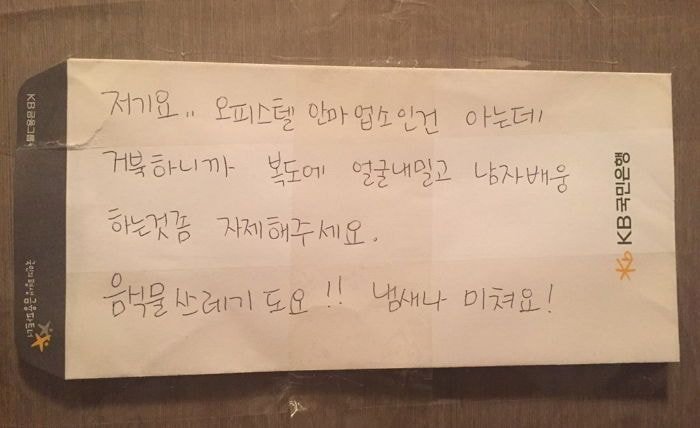 저기요.. 오피스텔 안마 업소인건 아는데
거북하니까 복도에 얼굴내밀고 남자배웅
하는것좀 자제해주세요.
음식물 쓰레기도요!! 냄새나 미쳐요!
KB 국민은행
KB금융그룹
국민의 평생 금융파트너